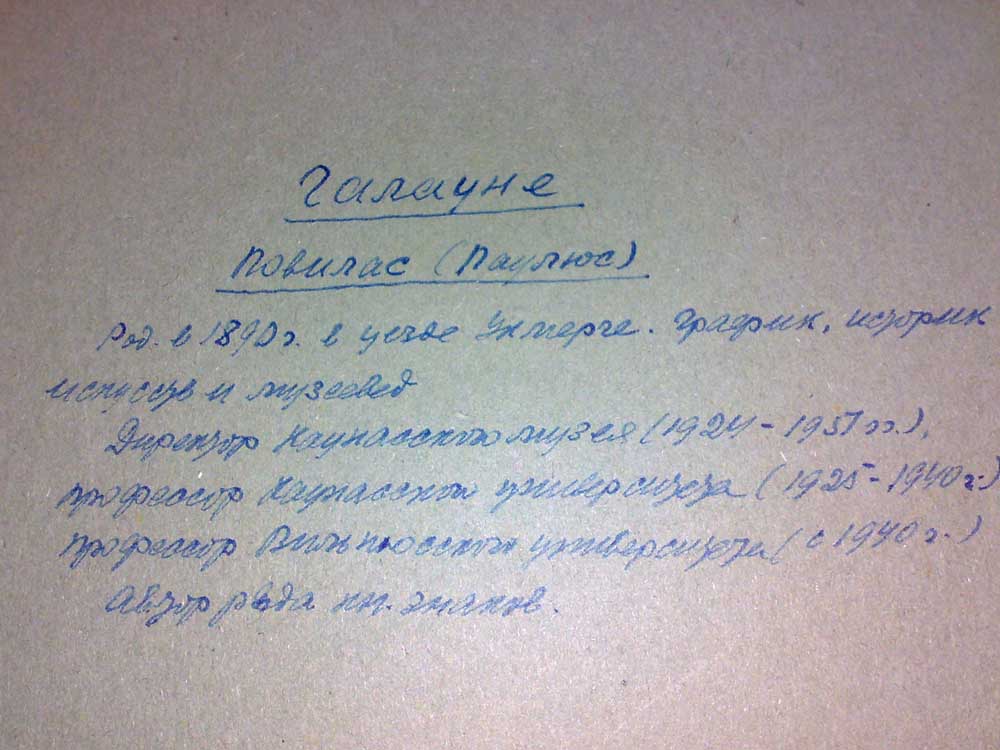 Галауне
Повилас (Паулюс)
Род. в 1890 г. в уезде Укмерге. График, историк
искусств и музеевед
Директор Каунасского музея (1924 - 1951 гг.),
профессор Каунасского университета (1925 - 1940 г.)
профессор Вильнюсского университета (с 1940 г.)
Автор ряда кн. знаков.